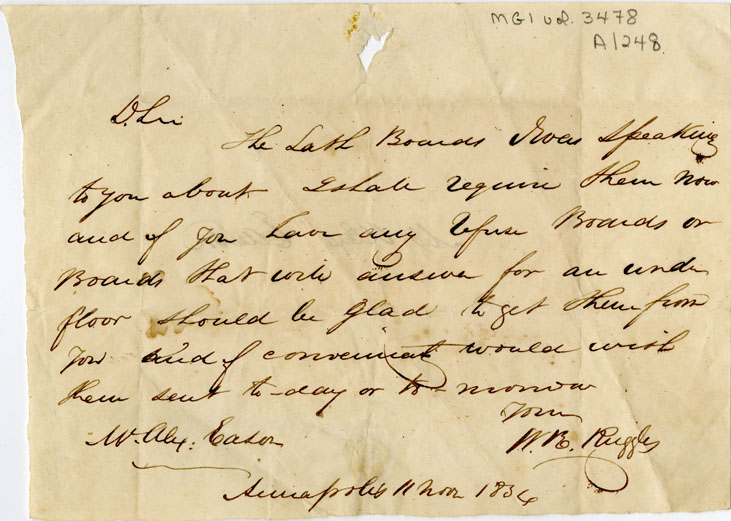 MG1 vol. 3478
A1248
D. Sir
The Lath Boards I was speaking
to you about I shall require them now
and if you have any refuse Boards or
Boards that will answer for an under
floor should be glad to get them from
you and if convenient would wish
them sent to-day or to-morrow
Yours
Mr. Alex: Eason W. B. Ruggles
Annapolis 11 Nov 1834